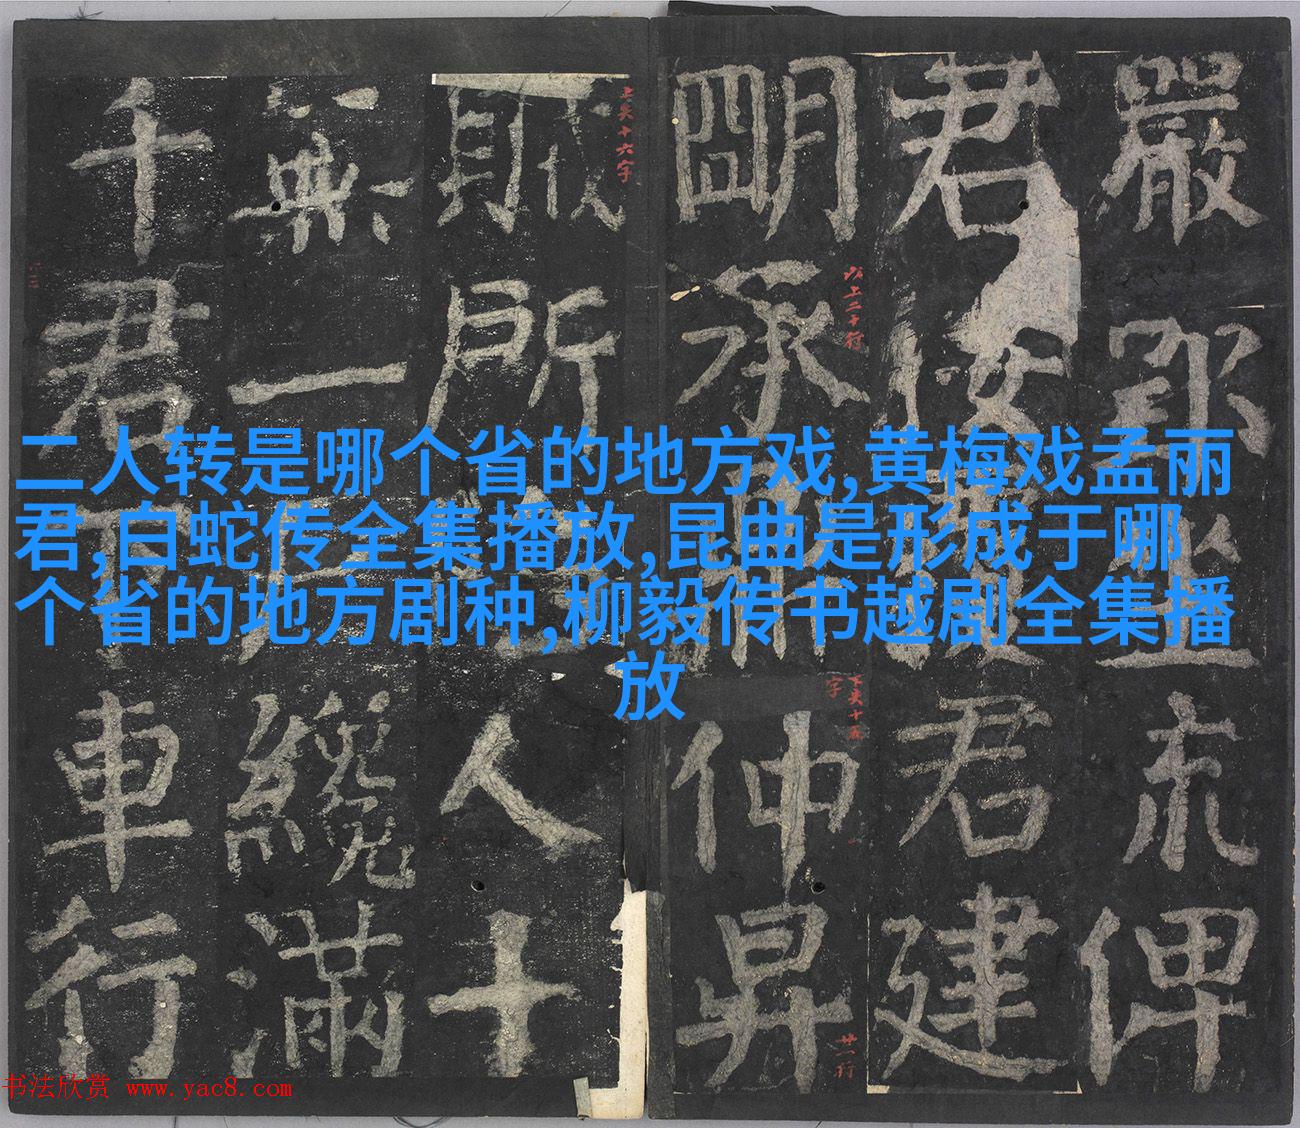 二人转是哪个省的地方戏,黄梅戏孟丽
君,白蛇传全集播放,昆曲是形成于哪
个省的地方剧种,柳毅传书越剧全集播
放
嚴郎坐未俾
君君建
朙承仲昇
以上二十行
廿一行
賊所人十
上夹十六字
無一纔滿
千君車行
书法欣赏 www.yac8.com